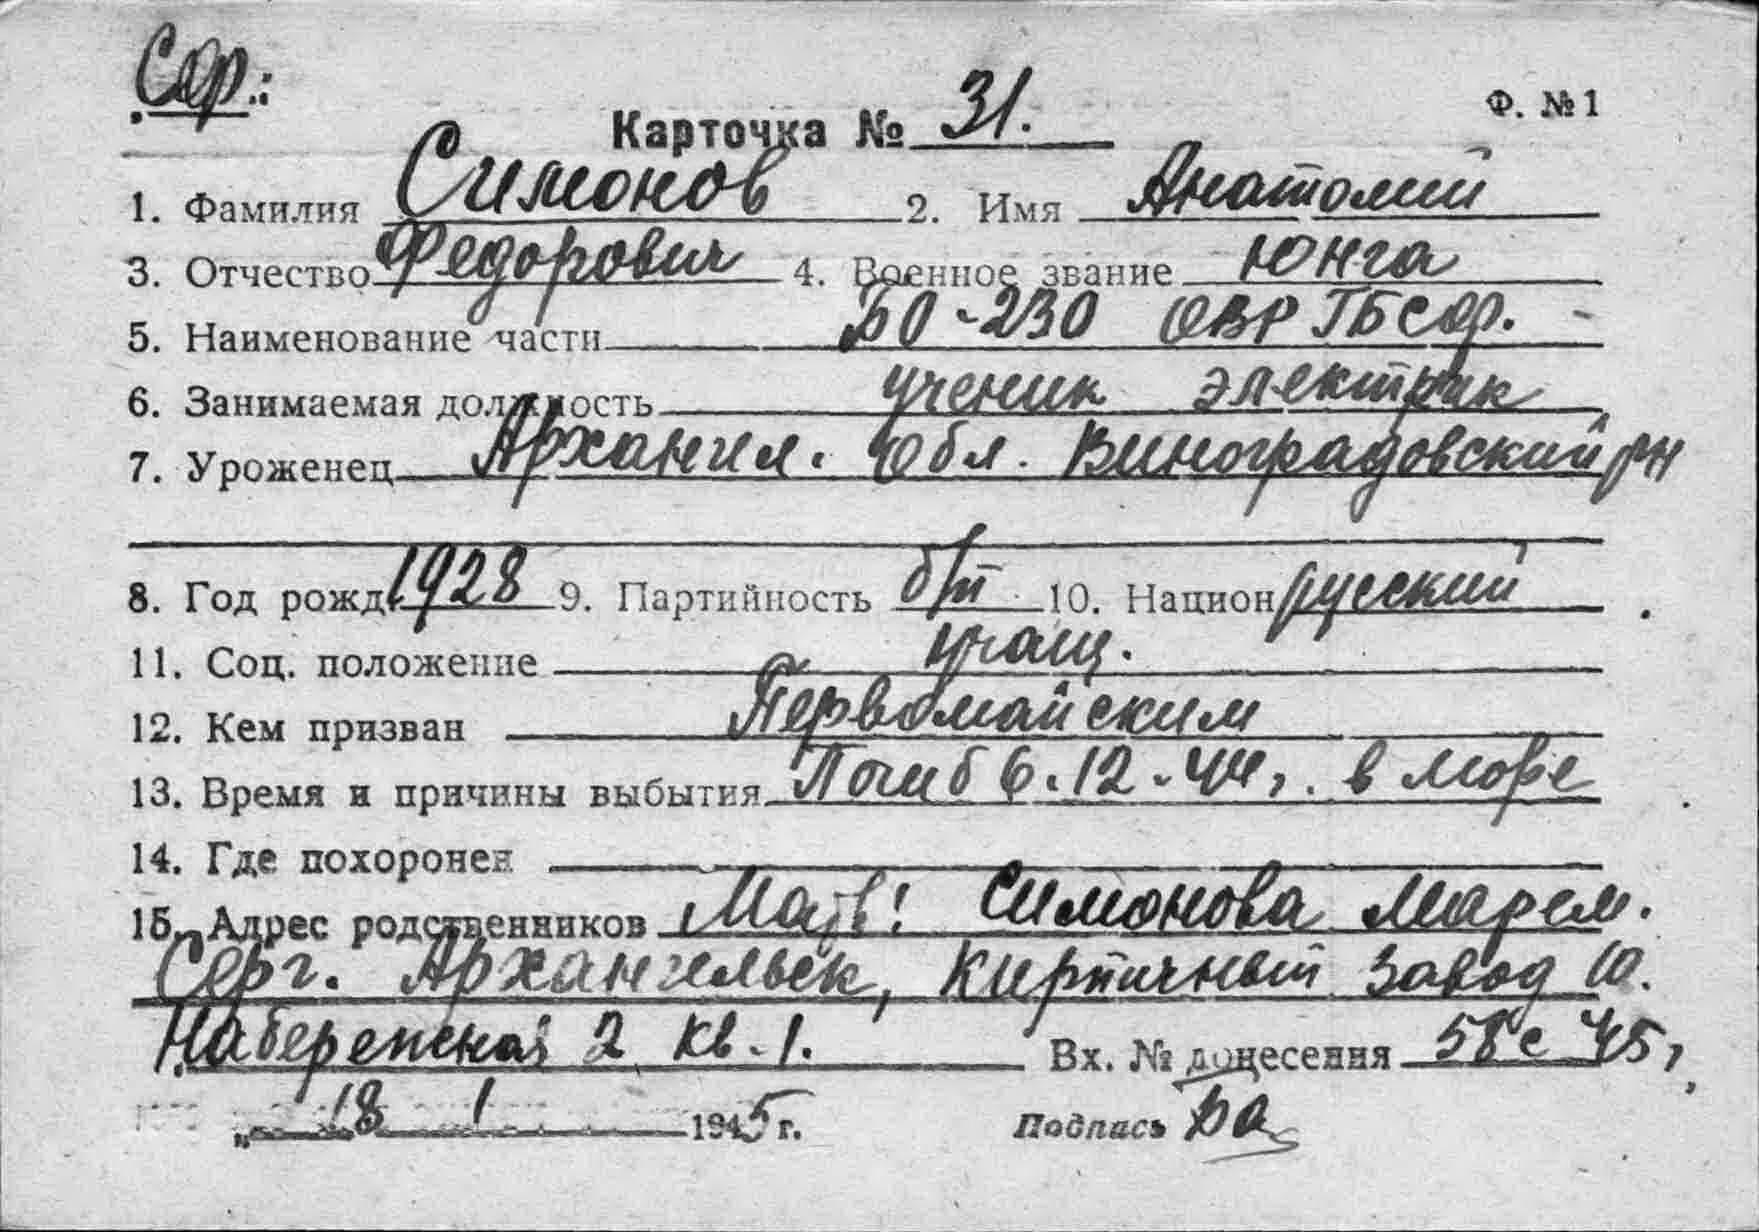 Сф.:
Ф. №1
Карточка № 31.
1. Фамилия Симонов 2. Имя Анатолий
3. Отчество Федорович 4. Военное звание юнга
5. Наименование части БО-230 ОВР ГБ СФ.
6. Занимаемая должность ученик электрик
7. Уроженец Архангел. обл. Виноградовский рн
8. Год рожд. 1928 9. Партийность б/п 10. Национ русский
11. Соц. положение учащ.
12. Кем призван Первомайским
13. Время и причины выбытия Погиб 6.12.44г. в море
14. Где похоронен
15. Адрес родственников Мать: Симонова
Серг. Архангельск, Кирпичный завод
Набережная 2 кв. 1. Вх. № донесения 58с 45г.
„ 18 1 1945 г. Подпись